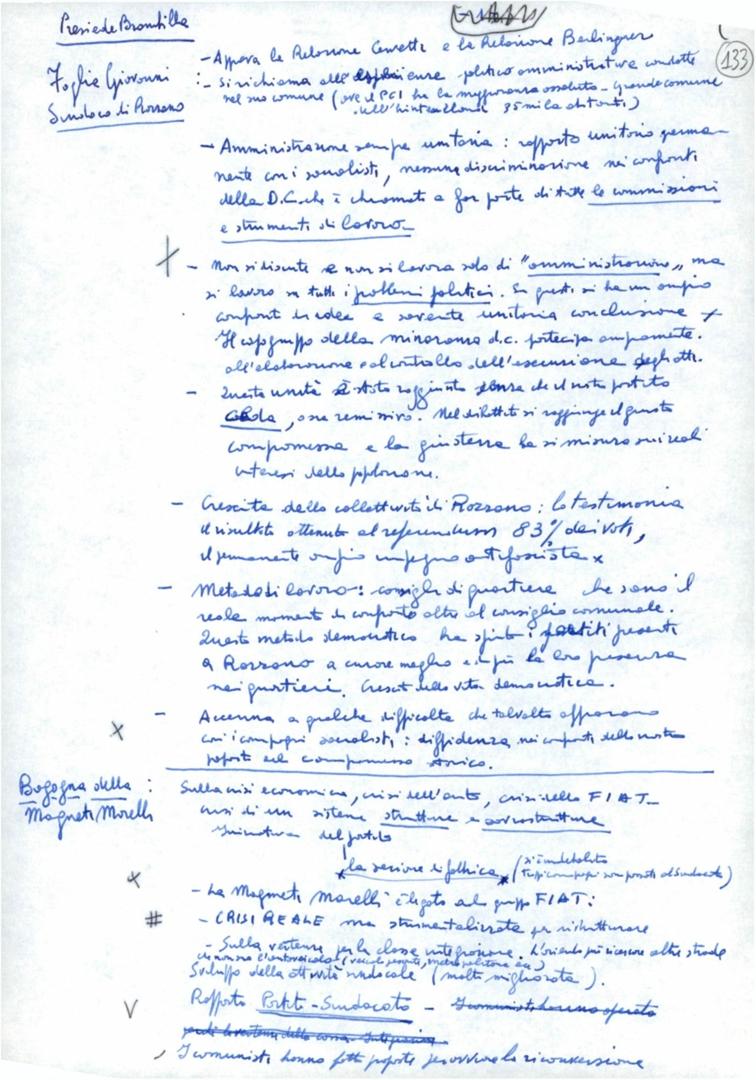 Presiede Brambilla
133
Foglia Giovanni
Sindaco di Rozzano
- Approva la Relazione Cervetti e la Relazione Berlinguer
- Si richiama all'esperienza politico amministrativa condotta
nel suo comune (ove il PCI ha la maggioranza assoluta - grande comune
dell'hinterland 35 mila abitanti)
- Amministrazione sempre unitaria: rapporto unitario perma-
nente con i socialisti, nessuna discriminazione nei confronti
della D.C. che è chiamata a far parte di tutte le commissioni
e strumenti di lavoro -
- Non si discute e non si lavora solo di "amministrazione" ma
si lavora su tutti i problemi politici. Su questi si ha un ampio
confronto di idee e sovente unitaria conclusione
Il capogruppo della minoranza d.c. partecipa ampiamente
all'elaborazione e al controllo dell'esecuzione degli atti.
- Questa unità è stata raggiunta senza che il nostro partito
ceda, o sia remissivo. Nel dibattito si raggiunge il giusto
compromesso e la giustezza la si misura sui reali
interessi della popolazione.
- Crescita della collettività di Rozzano: lo testimonia
il risultato ottenuto al referendum 83% dei voti,
il permanente ampio impegno antifascista x
- Metodo di lavoro: consigli di quartiere che sono il
reale momento di confronto oltre al consiglio comunale.
Questo metodo democratico ha spinto i partiti presenti
a Rozzano a curare meglio e di più la loro presenza
nei quartieri. Crescita della vita democratica.
x - Accenna a qualche difficoltà che talvolta appaiono
con i compagni socialisti: diffidenza nei confronti della nostra
proposta del compromesso storico.
Bogogna della :
Magneti Morelli
Sulla crisi economica, crisi dell'auto, crisi della FIAT -
crisi di un sistema strutture e sovrastrutture
Iniziativa del partito
la sezione di fabbrica (si è indebolita
troppi compagni sono passati al Sindacato)
x - La Magneti Marelli è legata al gruppo FIAT:
# - CRISI REALE ma strumentalizzata per ristrutturare
- Sulla vertenza per la cassa integrazione. L'azienda può ricercare altre strade
che non sia l'autoveicolo (veicoli pesanti, metropolitana ecc)
Sviluppo della attività sindacale (molto migliorata).
V Rapporto Partiti - Sindacato - I comunisti hanno operato
I comunisti hanno fatto proposte per avviare la riconversione